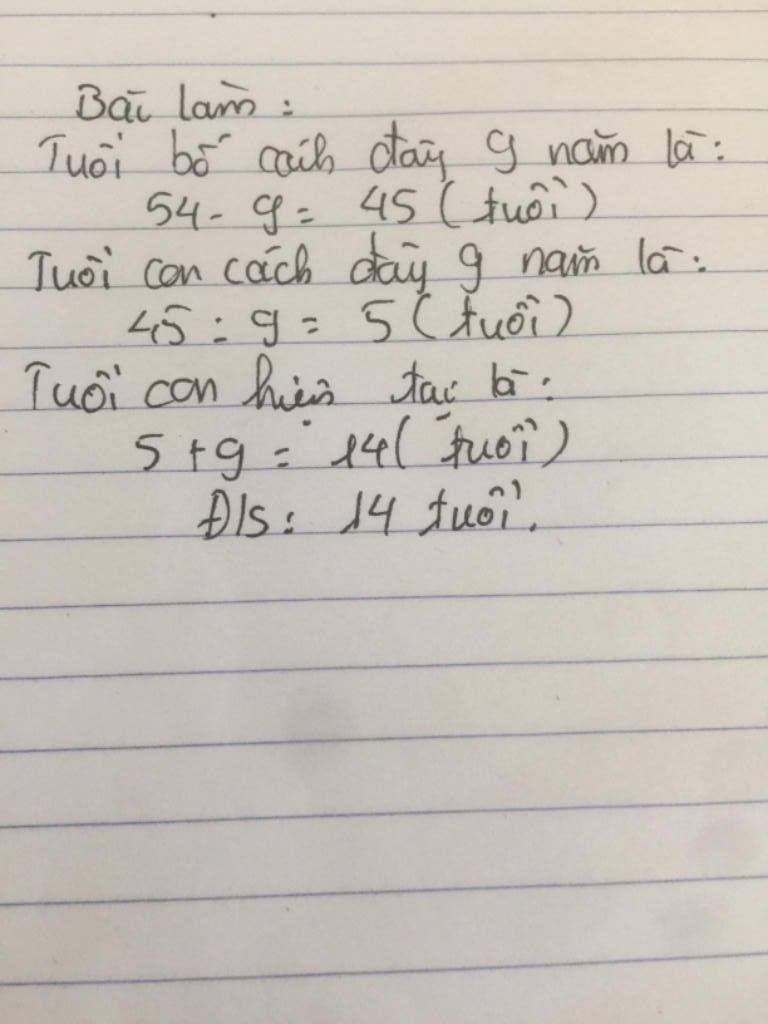 Bài làm:
Tuổi bố cách đây 9 năm là:
54 - 9 = 45 (tuổi)
Tuổi con cách đây 9 năm là:
45 : 9 = 5 (tuổi)
Tuổi con hiện tại là:
5 + 9 = 14 (tuổi)
Đ/S: 14 tuổi.